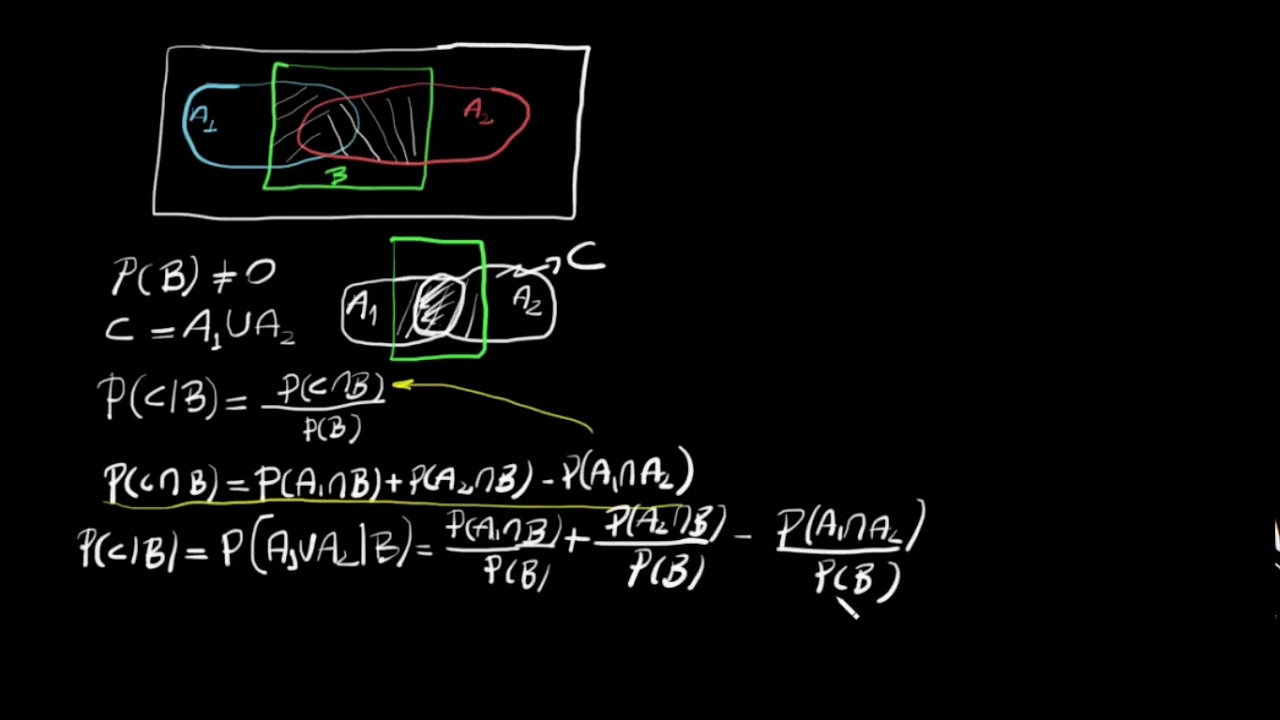 A₁ A₂
B
P(B) ≠ 0
C
C = A₁ ∪ A₂
A₁ A₂
P(C|B) = P(C∩B) / P(B)
P(C∩B) = P(A₁∩B) + P(A₂∩B) - P(A₁∩A₂)
P(C|B) = P(A₁∪A₂|B) = P(A₁∩B) / P(B) + P(A₂∩B) / P(B) - P(A₁∩A₂) / P(B)